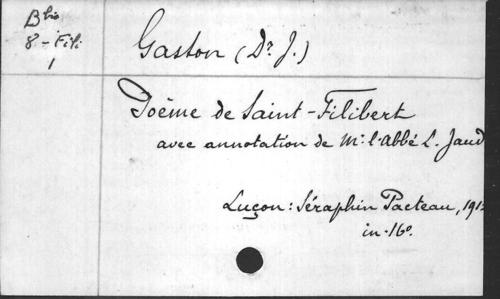 Bio
8 - Fili
1
Gaston (Dr J.)
Poème de Saint-Filibert
avec annotation de Mr l'Abbé L. Jaud
Luçon: Séraphin Pacteau, 191
in-16o.